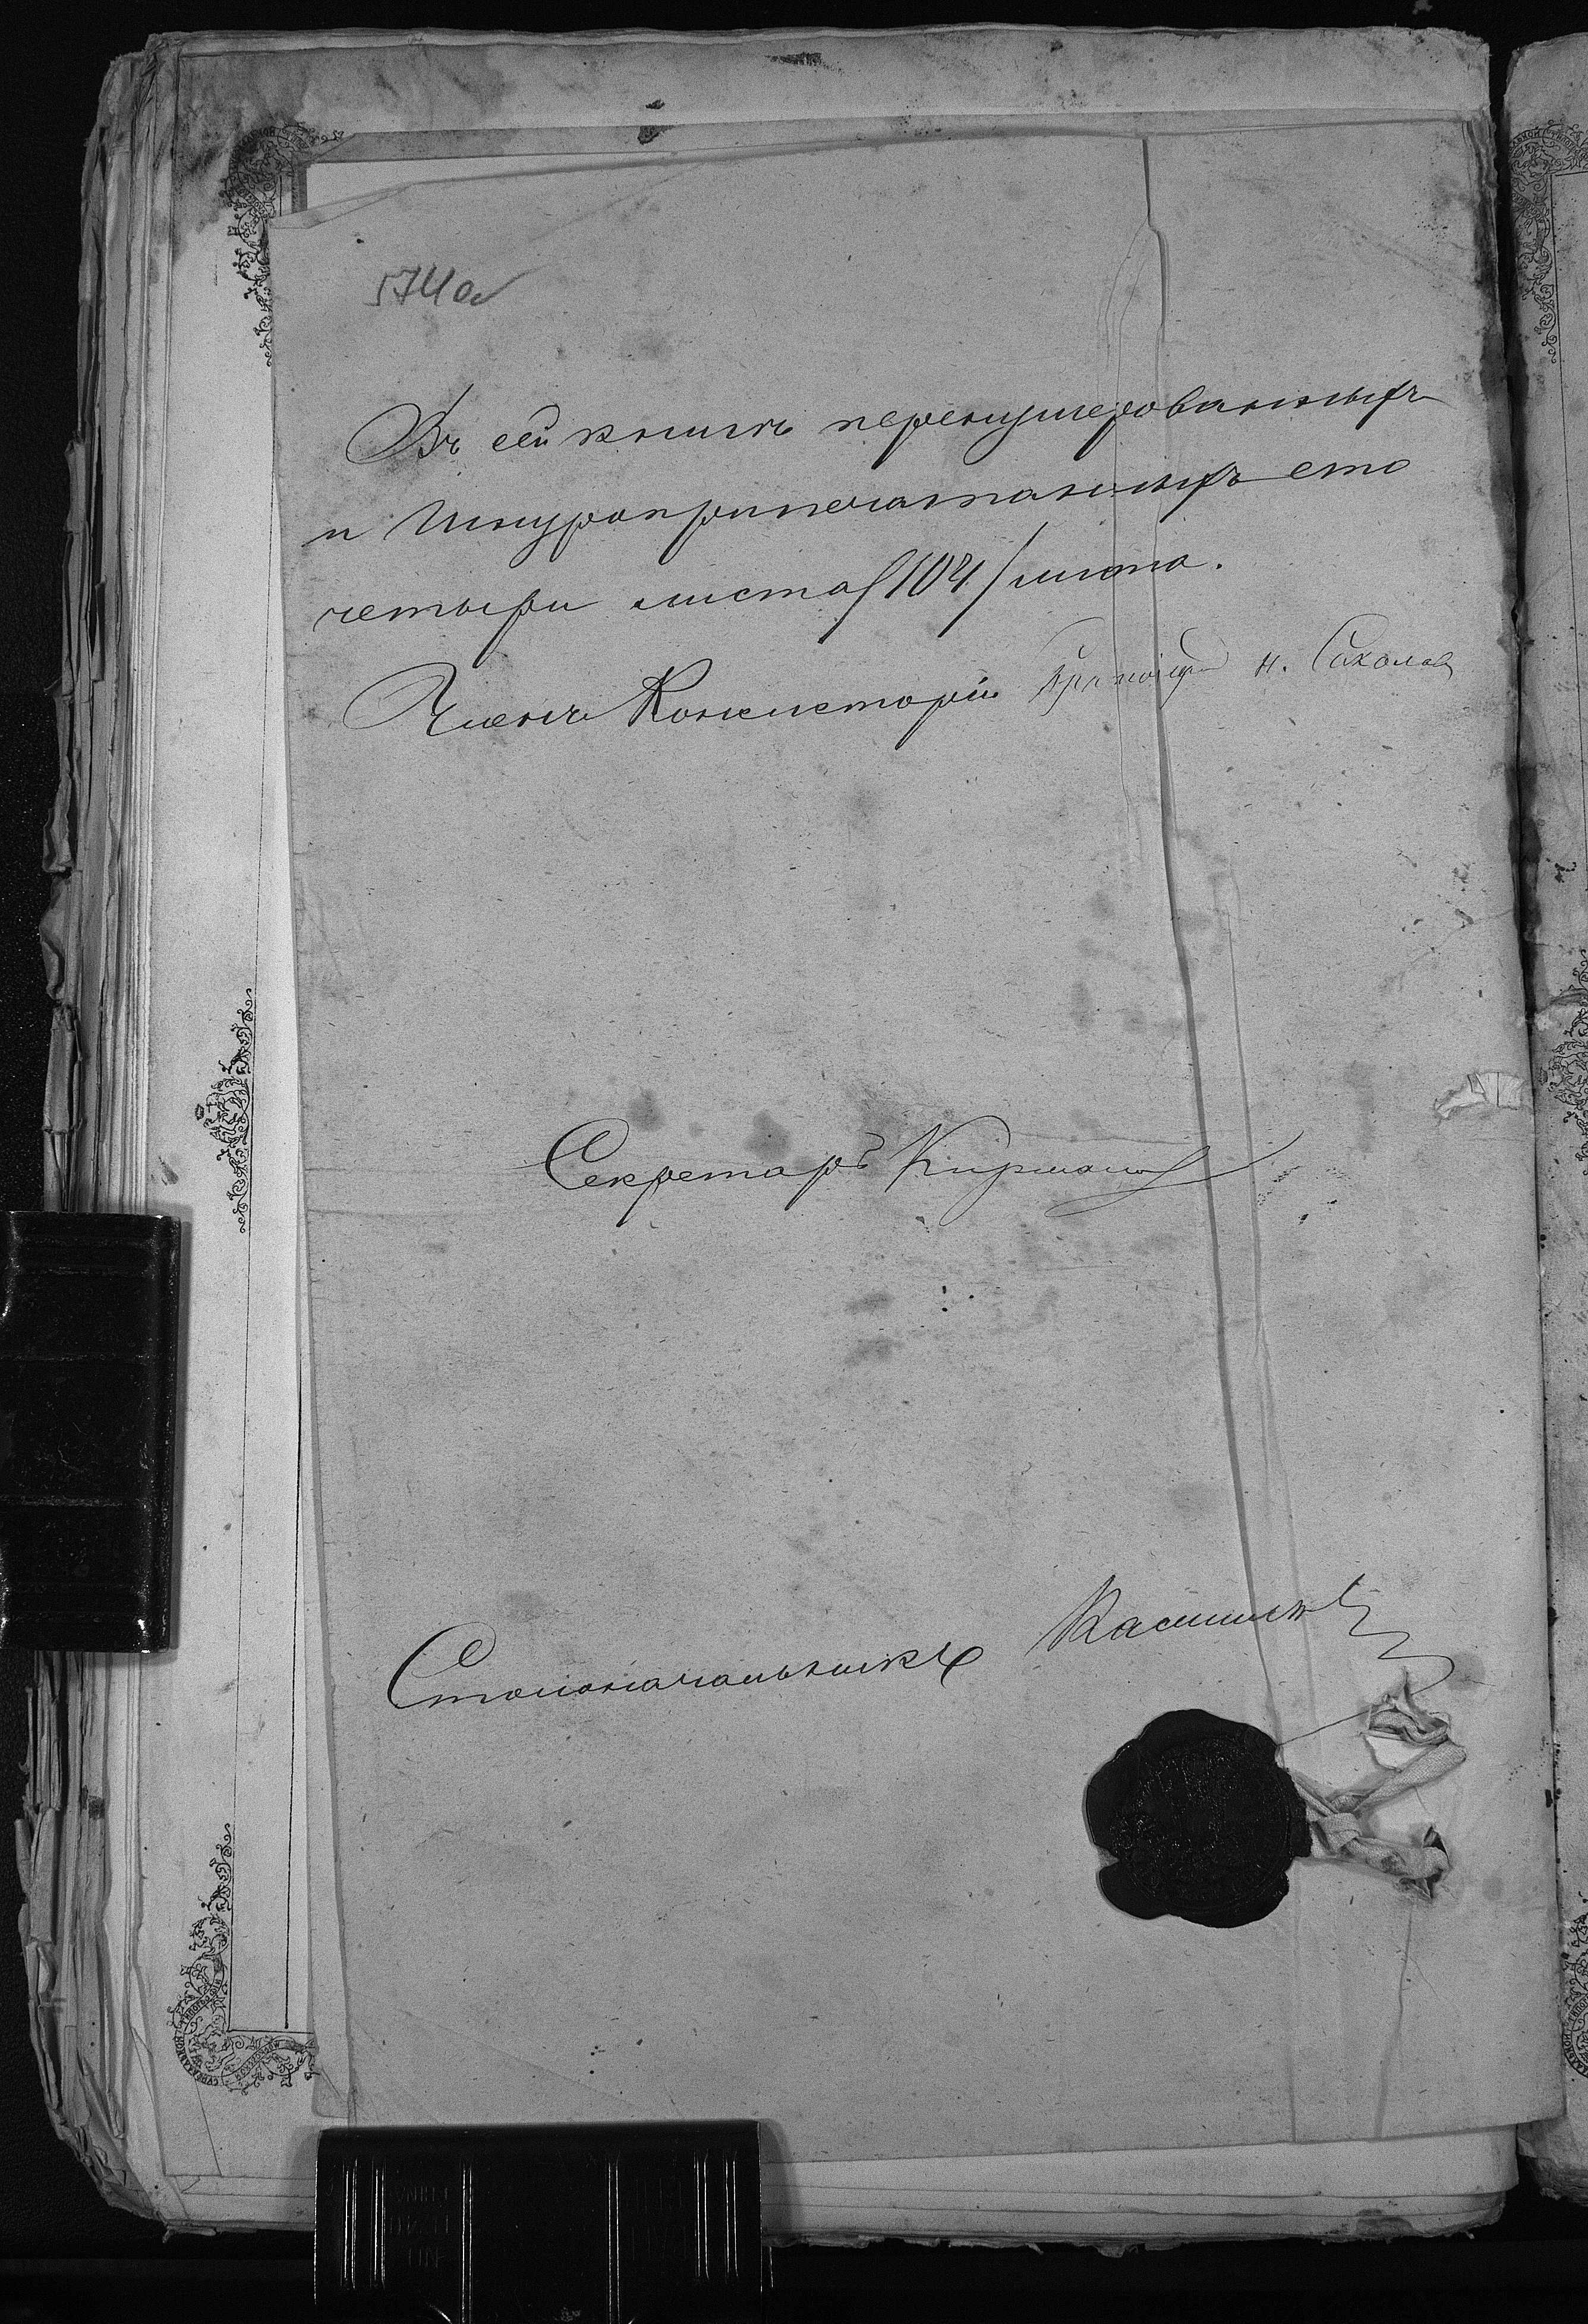 574а
Въ сей книгѣ перенумерованныхъ
и шнуроприпечатанныхъ сто
четыри листа /104/ листа.
Членъ Консисторіи Протоіерей Н. Соколов
Секретарь
Столоначальникъ